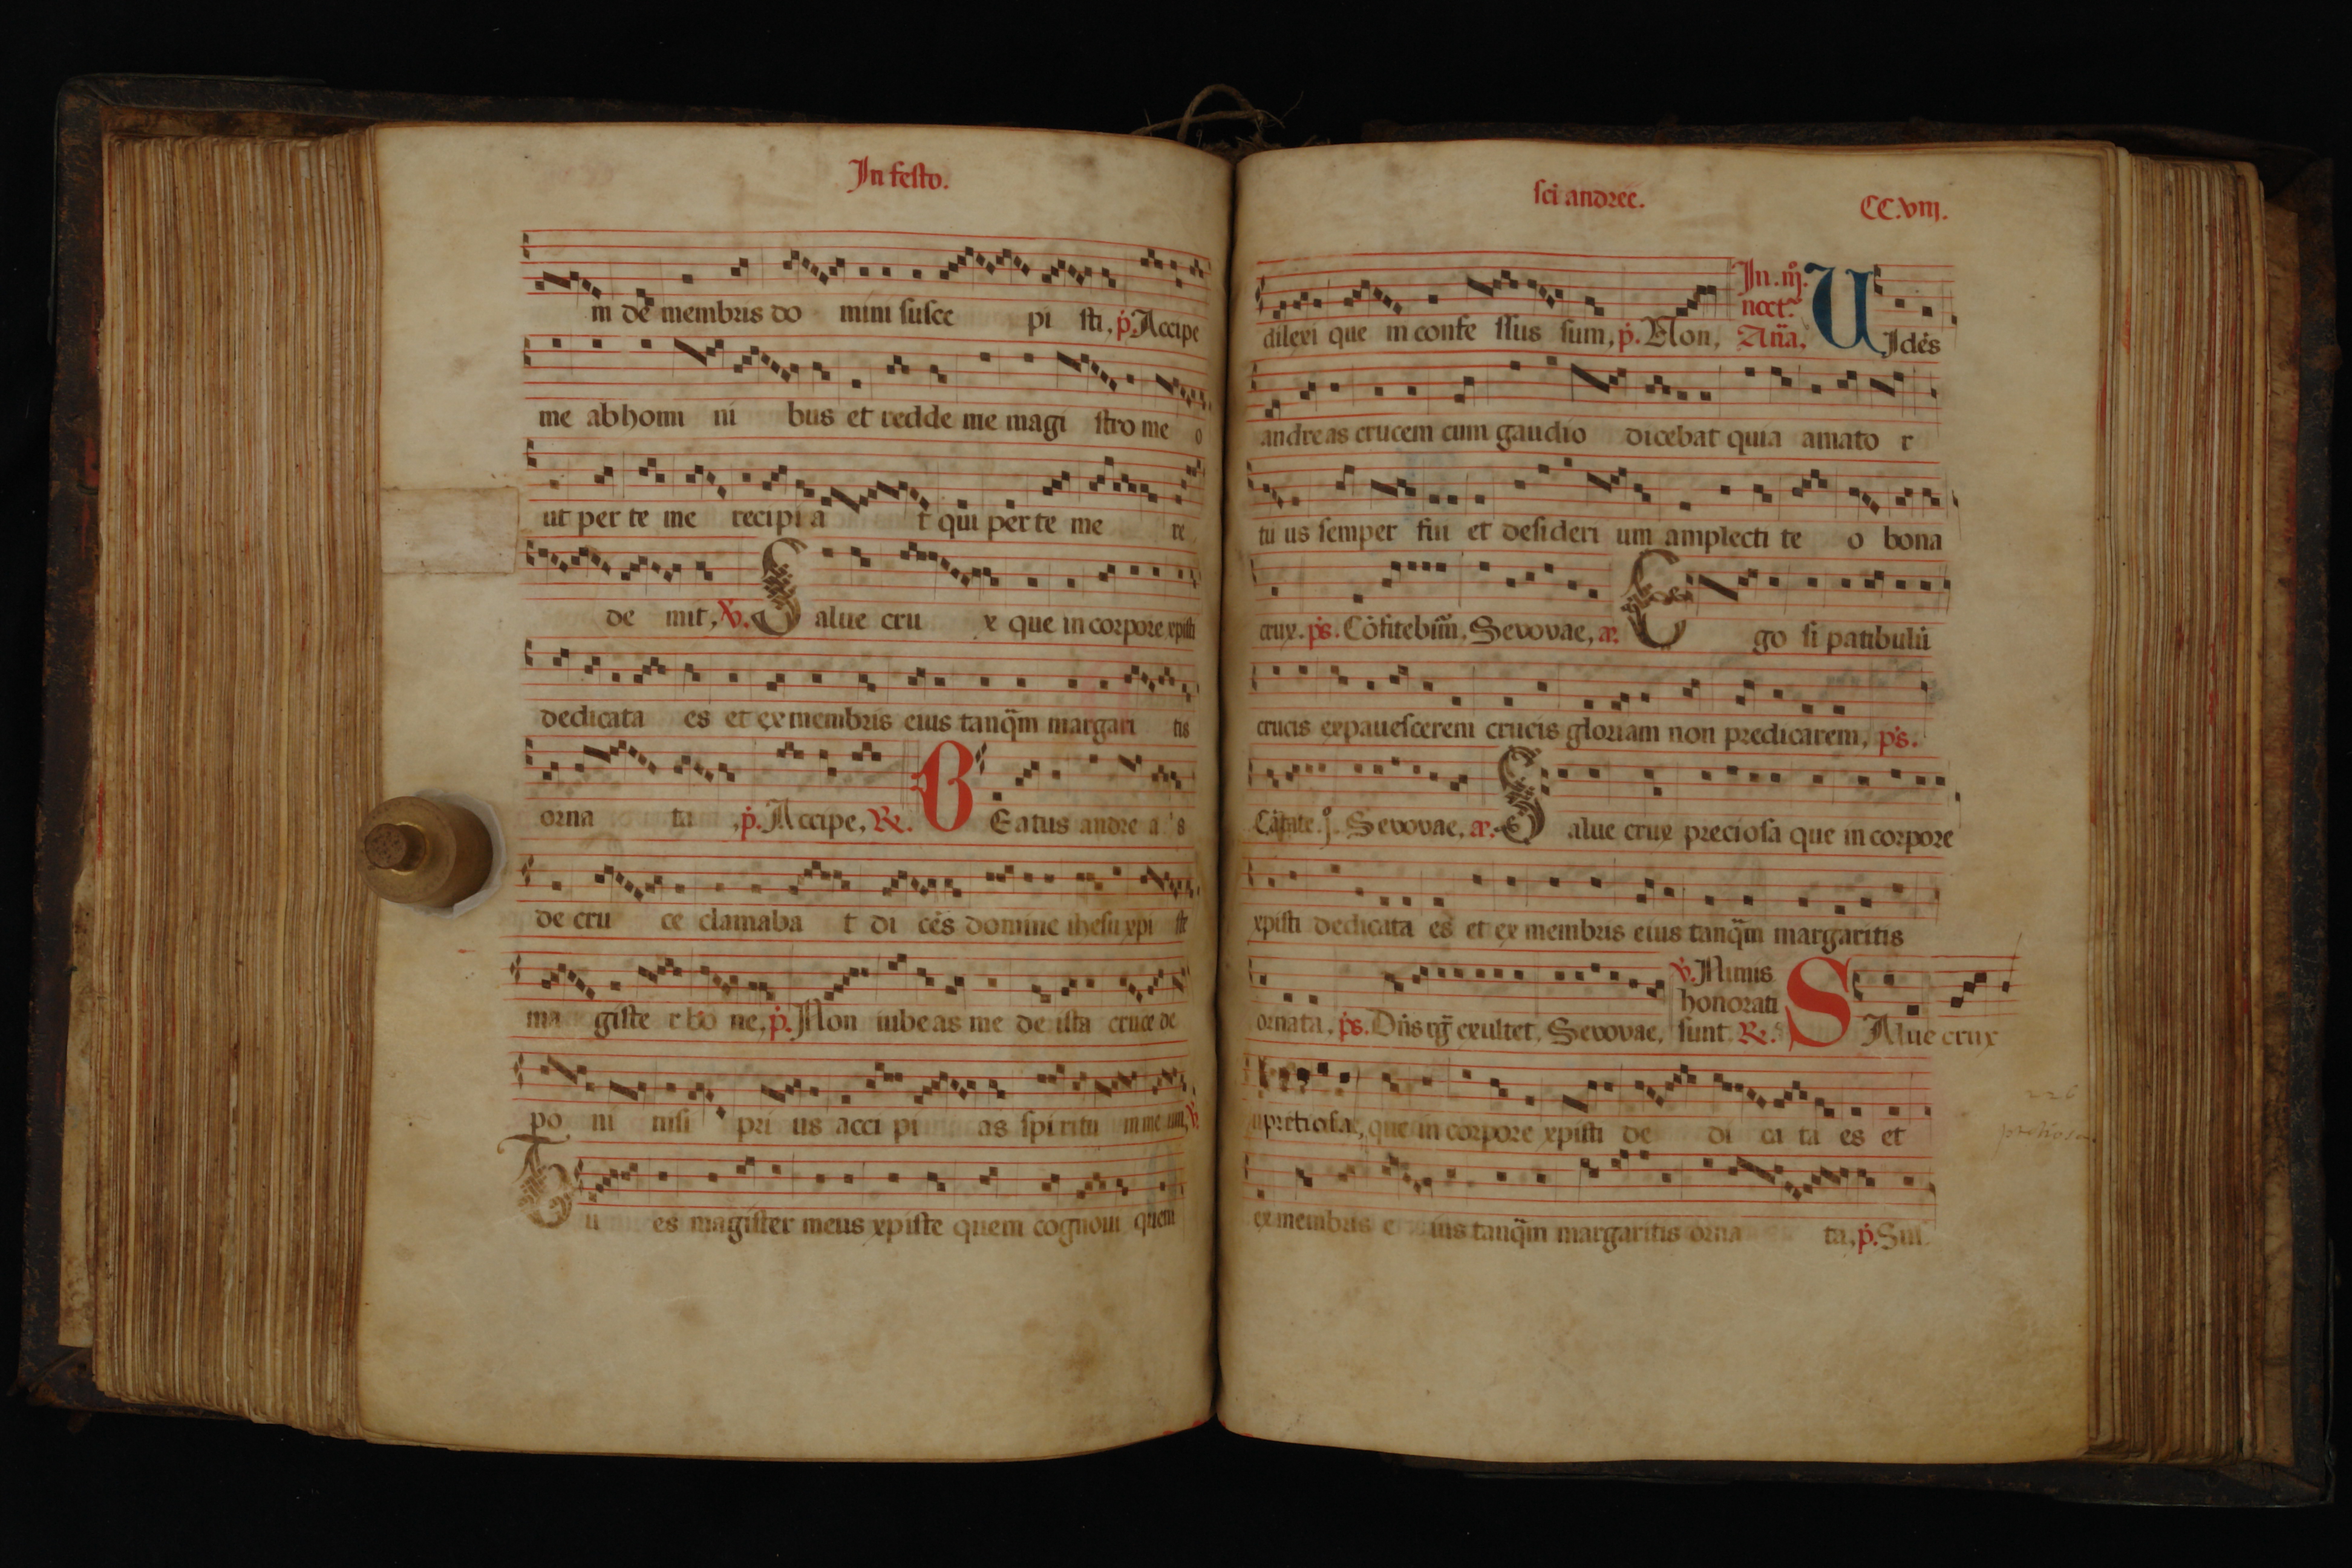 In festo.
m de membris do mini susce pi sti, p. Accipe
me ab homi ni bus et redde me magi stro me o
ut per te me recipi a t qui per te me re
de mit, V. Salue cru x que in corpore xpisti
dedicata es et ex membris eius tanq̃m margari tis
orna ta, p. Accipe, R. BEatus andre a s
de cru ce clamaba t di cẽs domine ihesu xpi ste
ma giste r bo ne, p. Non iubeas me de ista cruce de
po ni nisi pri us acci pi as spiritu m me um, V.
Tu es magister meus xpiste quem cognoui quem
sci andree. CC.viij.
dilexi que in confe ssus sum, p. Non, In .iij. noct. Aña, UIdẽs
andreas crucem cum gaudio dicebat quia amato r
tu us semper fui et desideri um amplecti te o bona
crux. ps. Cõfitebim̃. Sevovae, a. Ego si patibulũ
crucis expauescerem crucis gloriam non predicarem, ps.
Cãtate .j. Sevovae, a. Salue crux preciosa que in corpore
xpisti dedicata es et ex membris eius tanq̃m margaritis
ornata, ps. Dñs rg̃ exultet, Sevovae, V. Nimis honorati sunt R. SAlue crux
pretiosa, que in corpore xpisti de di ca ta es et
226
pretiosa
ex membris e ius tanq̃m margaritis orna ta, p. Sus